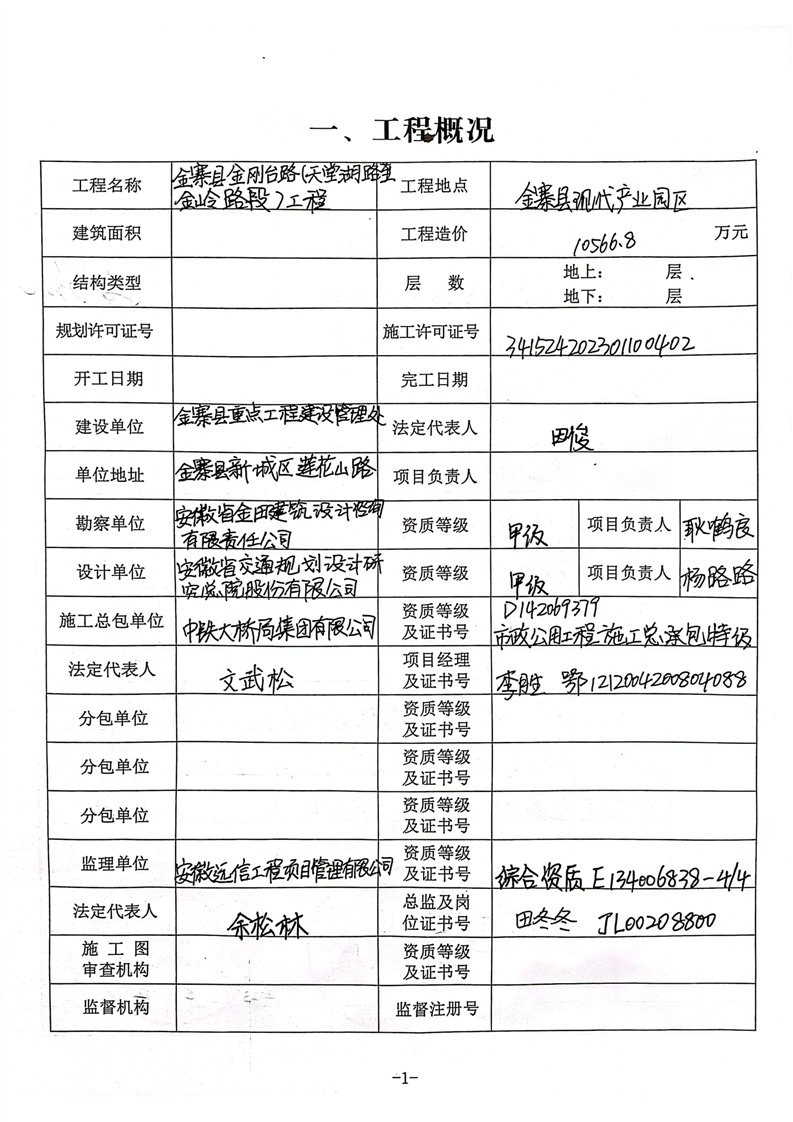 一、工程概况
工程名称 金寨县金刚台路(天堂湖路至金岭路段)工程 工程地点 金寨县现代产业园区
建筑面积 工程造价 10566.8 万元
结构类型 层 数 地上: 层
地下: 层
规划许可证号 施工许可证号 341524202301100402
开工日期 完工日期
建设单位 金寨县重点工程建设管理处 法定代表人 田俊
单位地址 金寨县新城区莲花山路 项目负责人
勘察单位 安徽省金田建筑设计咨询有限责任公司 资质等级 甲级 项目负责人 耿鹤良
设计单位 安徽省交通规划设计研究总院股份有限公司 资质等级 甲级 项目负责人 杨路路
施工总包单位 中铁大桥局集团有限公司 资质等级及证书号 D142069379
市政公用工程施工总承包特级
法定代表人 文武松 项目经理及证书号 李胜 鄂1212004200804088
分包单位 资质等级及证书号
分包单位 资质等级及证书号
分包单位 资质等级及证书号
监理单位 安徽远信工程项目管理有限公司 资质等级及证书号 综合资质E134006838-4/4
法定代表人 余松林 总监及岗位证书号 田冬冬 JL00208800
施工图审查机构 资质等级及证书号
监督机构 监督注册号
-1-